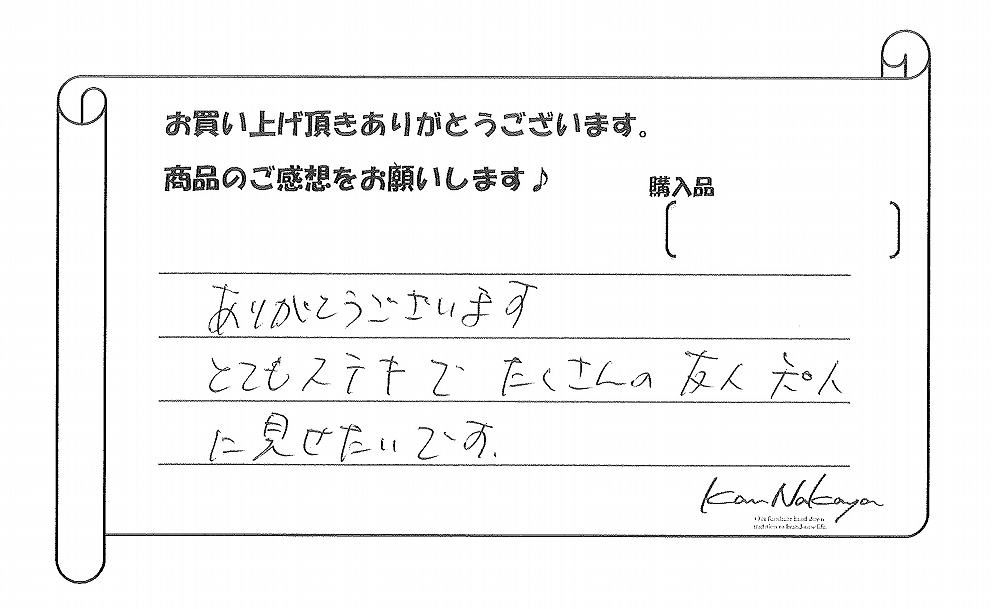 お買い上げ頂きありがとうございます。
商品のご感想をお願いします♪
購入品
ありがとうございます
とてもステキで たくさんの 友人 知人
に見せたいです.
Kan Nakaya